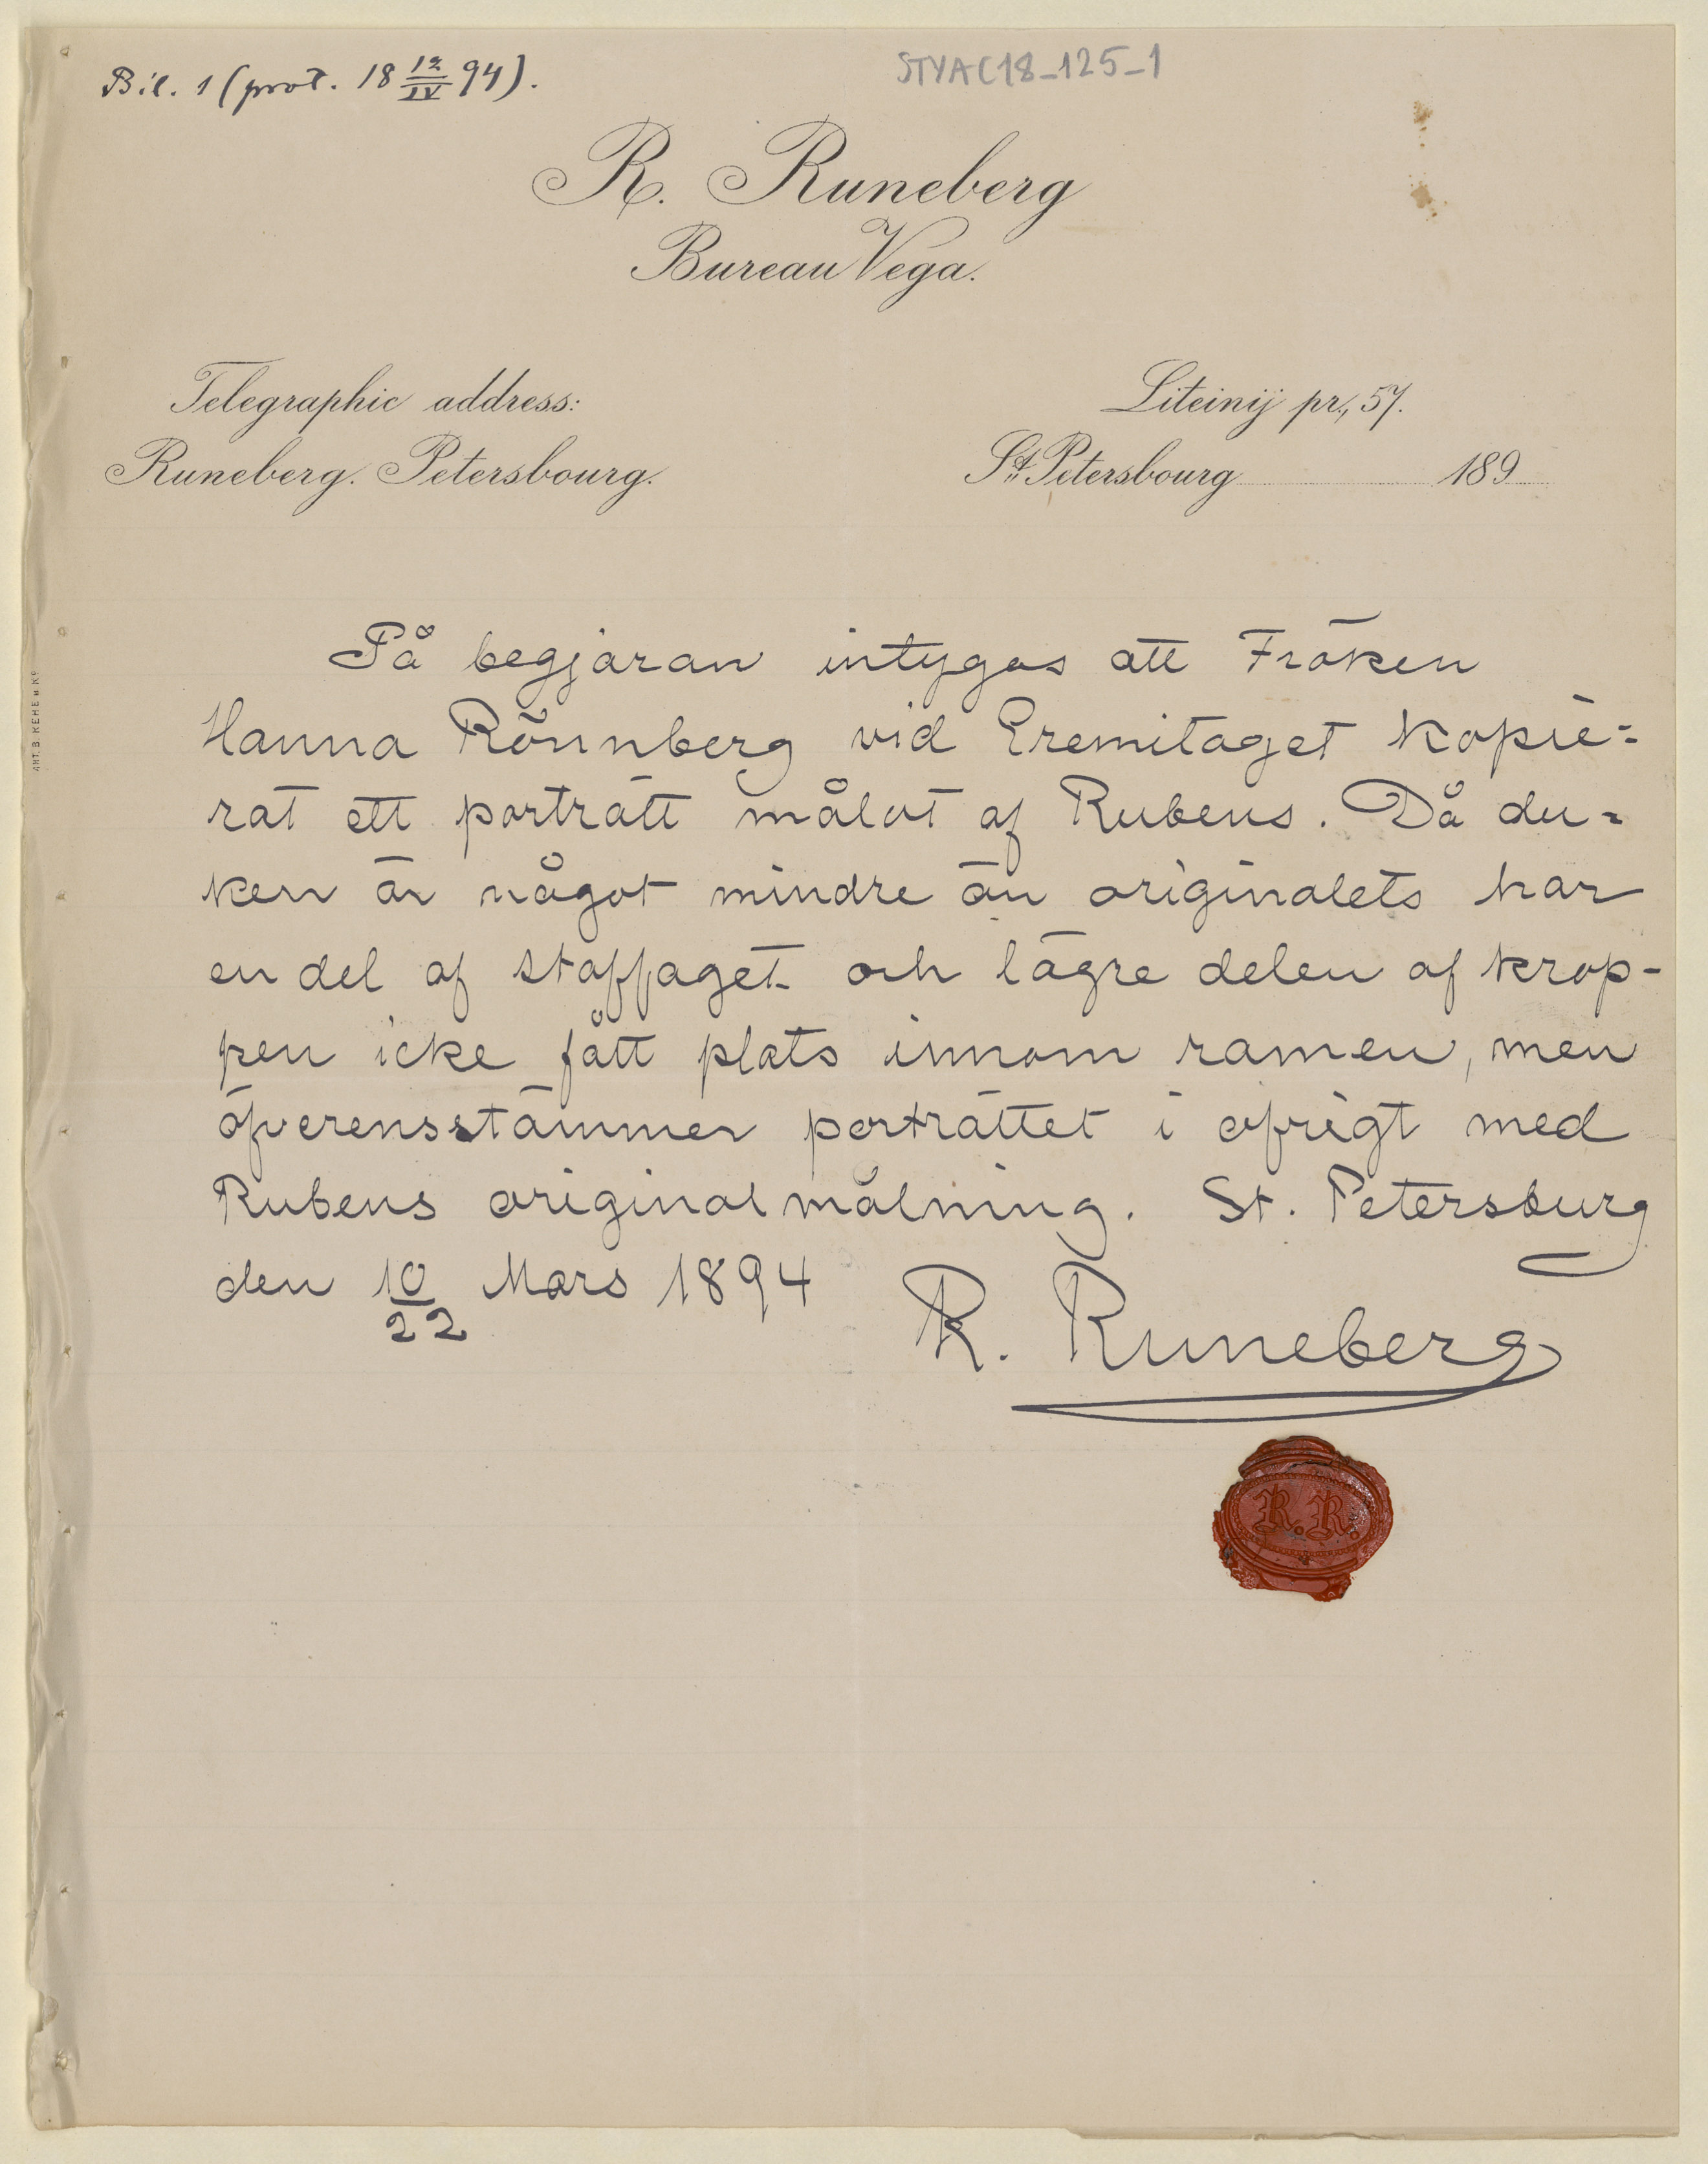 Bil. 1 (prot. 18 12/IV 94).
STYAC18_125_1
R. Runeberg
Bureau Vega.
Telegraphic address:
Runeberg. Petersbourg.
Liteinij pr., 57.
St. Petersbourg 189
På begjäran intygas att Fröken
Hanna Rönnberg vid Eremitaget kopie=
rat ett porträtt målat af Rubens. Då du=
ken är något mindre än originalets har
en del af staffaget och lägre delen af krop-
pen icke fått plats innom ramen, men
öfverensstämmer porträttet i öfrigt med
Rubens originalmålning. St. Petersburg
den 10/22 Mars 1894
R. Runeberg
R. R.